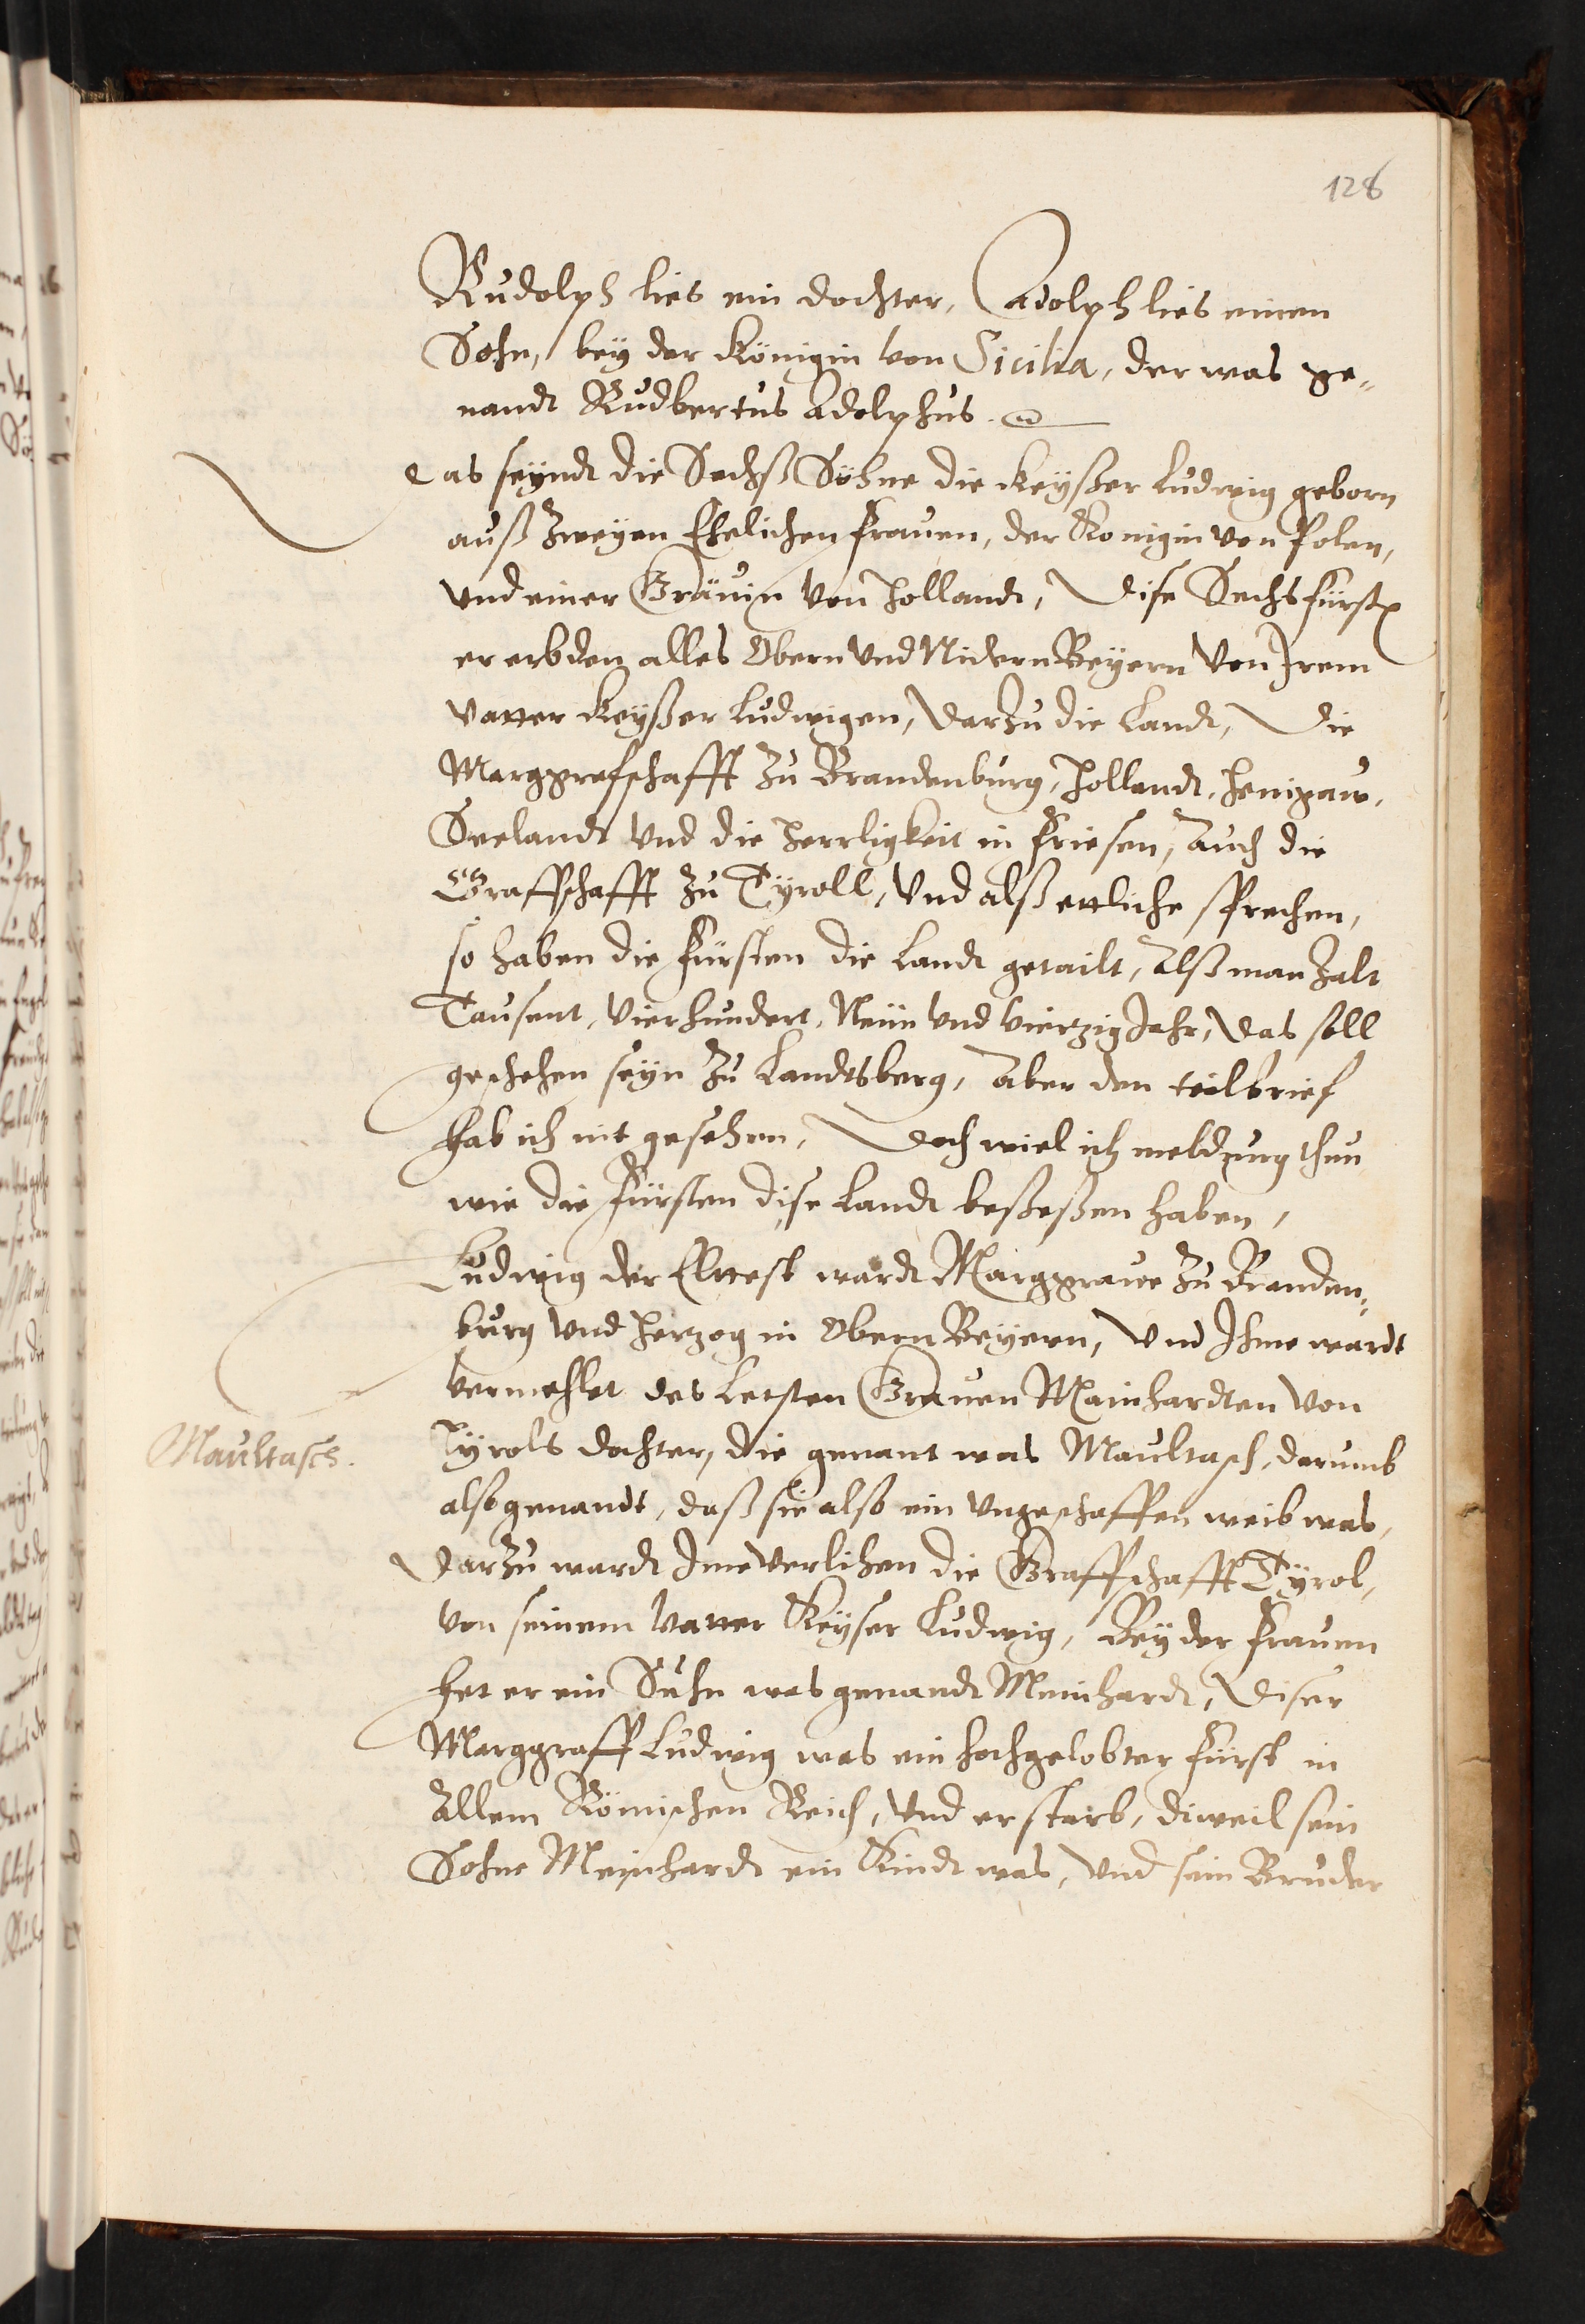 128
Rudolph lies ein dochter, Adolph lies einen
Sohn, bey der Königin von Sicilia, der was ge„
nandt Rudbertus Adolphus.
Das seyndt die Sechß Söhne die Keyßer Ludwig geborn
auß zweyen Ehelichen frauen, der Konigin von Polen,
vnd einer Grävin von Hollandt, Dise Sechs fürsten
ererbden alles Obern vnd Nidern Beyern von Irem
vatter Keyßer Ludwigen, darzu die Landt, Die
Marggrefschafft zu Brandenburg, Hollandt, Henigaw,
Seelandt vnd die Herrligkeit in Friesen, Auch die
Graffschafft zu Tyroll, vnd alß ettliche sprechen,
so haben die Fürsten die Landt getailt, Alß man zalt
Tausent, vierhundert, Neün vnd vierzig Jahr, das soll
geschehen seyn zu Landtsberg, Aber den teilbrief
hab ich nit gesehen, Doch wiel ich meldzung thun
wie die Fürsten dise Landt beßeßen haben,
Ludwig der Elttest wardt Marggrave zu Branden„
burg vnd Herzog in Obern Beyern, vnd Ihme wardt
vermehlet des Letsten Graven Mainhardten von
Tyrols dochter, die genant was Maultasch, darumb
also genandt, daß sie also ein vngeschaffen weib was,
Darzu wardt Ime verlihen die Graffschafft Tyrol,
von seinem vatter Keyser Ludwig, Bey der Frauen
het er ein Suhn was genandt Meinhardt, Diser
Marggraff Ludwig was ein hochgelobter Fürst in
Allem Römischen Reich, vnd er starb, dieweil sein
Sohne Meinhardt ein Kindt was, vnd sein Bruder
Maultasch.